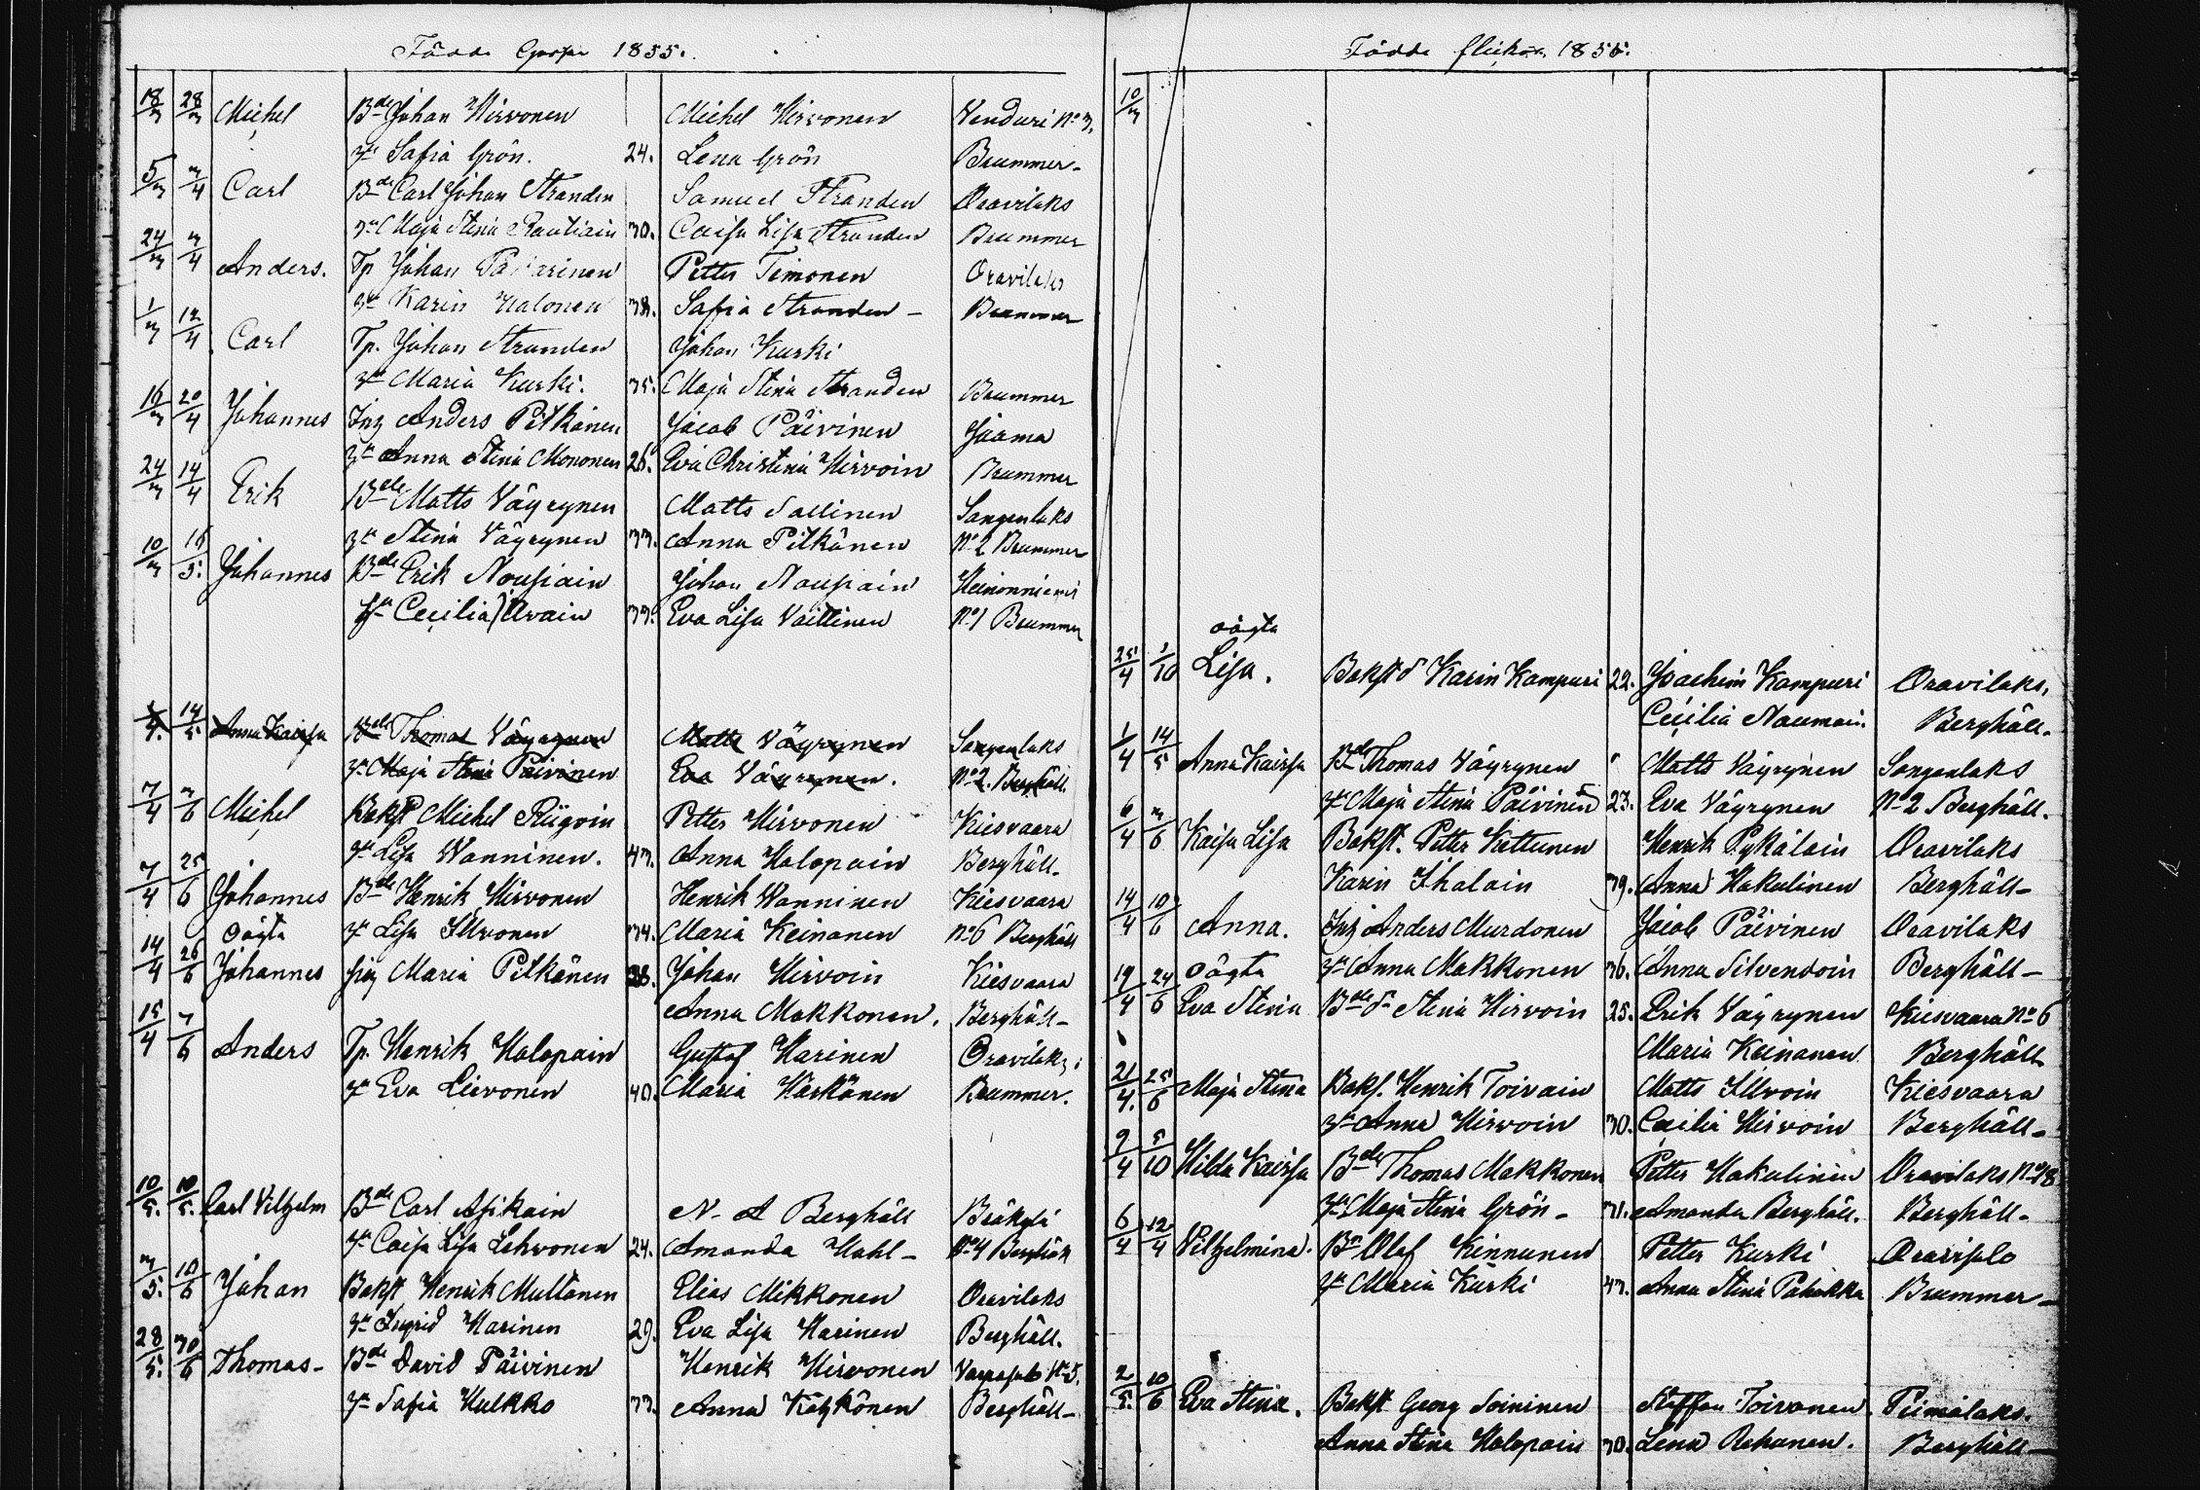 Födda Gossar 1855.
18/3 28/3 Michel Bde Johan Hirvonen Michel Hirvonen Venduri No 3.
hu Safia Grön. 24. Lena Grön Brummer-
5/3 3/4 Carl Bde Carl Johan Stranden Samuel Stranden Oravilaks
hu Maja Stina Rautiain 30. Caisa Lisa Stranden Brummer
24/3 3/4 Anders. Tp Johan Pakarinen Petter Timonen Oravilaks
hu Karin Halonen 38. Safia Stranden - Brummer
1/3 12/4 Carl Tp. Johan Stranden Johan Kurki
hu Maria Kurki. 35. Maja Stina Stranden Brummer
16/3 20/4 Johannes Inh Anders Pitkänen Jacob Päivinen Jaama
hu Anna Stina Mononen 26. Eva Christina Hirvoin Brummer
24/3 14/4 Erik Bde Matts Väyrynen Matts Sallinen Sangenlaks
hu Stina Väyrynen 33. Anna Pitkänen No 2 Brummer
10/3 16/5. Johannes Bde Erik Nousiain Johan Nousiain Heinoniemi
hu Cecilia Avain 33. Eva Lisa Vaittinen No 1 Brummer
14/5 Anna Kaisa Bde Thomas Väyrynen Matts Väyrynen Sangenlaks
hu Maja Stina Päivinen Eva Väyrynen. No 2. Berghäll
7/4 3/6 Michel Bakst Michel Riigoin Petter Hirvonen Kiesvaara
hu Lisa Wanninen. 43. Anna Halopain Berghäll-
7/4 25/6 Johannes Bde Henrik Hirvonen Henrik Wanninen Kiesvaara
hu Lisa Illvonen 34. Maria Keinanen No 6 Berghäll
oägta
14/4 26/6 Johannes Maria Pitkänen 28. Johan Hirvoin Kiesvaara
Anna Makkonen. Berghäll-
15/4 7/6 Anders Tp. Henrik Halopain Gustaf Harinen Oravilaks
hu Eva Lievonen 40. Maria Härkönen Brummer.
10/5. 10/5. Carl Vilhelm Bde Carl Asikain N- A Berghäll Bräkylä
hu Caisa Lisa Lehvonen 24. Amanda Hahl- No 4 Berghäll
3/5. 10/6 Johan Bakst Henrik Multanen Elias Mikkonen Oravilaks
hu Ingrid Harinen 29. Eva Lisa Harinen Berghäll.
28/5. 30/6 Thomas- Bde David Päivinen Henrik Hirvonen Varpasalo No 5.
hu Safia Hulkko 33. Anna Kätkönen Berghäll-
Födda flickor. 1855.
10/3
oägta
25/4 1/10 Lisa. Bakst d Karin Kampuri 22. Joachim Kampuri Oravilaks.
Cecilia Nauman. Berghäll-
1/4 14/5 Anna Kaisa Bde Thomas Väyrynen Matts Väyrynen Sangenlaks
hu Maja Stina Päivinen 23. Eva Väyrynen No 2 Berghäll.
6/4 3/6 Kaisa Lisa Bakst. Petter Kettunen Henrik Pykäläin Oravilaks
Karin Ihalain 39. Anna Hakulinen Berghäll-
14/4 10/6 Anna. Inh Anders Murdonen Jacob Päivinen Oravilaks
hu Anna Makkonen 36. Anna Silvendoin Berghäll-
oägta
19/4 24/6 Eva Stina Bde d. Stina Hirvoin 25. Erik Väyrynen Kiesvaara No 6
Maria Keinanen Berghäll
21/4. 25/6 Maja Stina Bakst. Henrik Toivain Matts Illvoin Kiesvaara
hu Anna Hirvoin 30. Cecilia Hirvoin Berghäll-
9/4 5/10 Hilda Kaisa Bde Thomas Makkonen Petter Hakulinen Oravilaks No 18
hu Maja Stina Grön- 31. Amanda Berghäll. Berghäll-
6/4 12/4 Vilhelmina. Bn Olof Kinnunen Petter Kurki Oravisalo
hu Maria Kurki 43. Anna Stina Pahakka Brummer-
2/5. 10/6 Eva Stina. Bakst Georg Soininen Staffan Toivonen Piimälaks.
Anna Stina Halopain 30. Lena Rehunen. Berghäll-